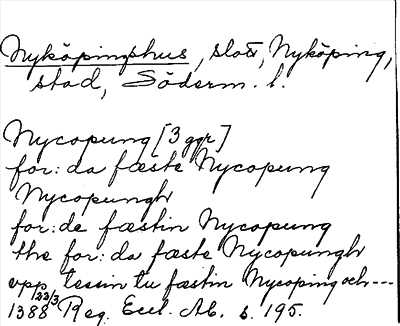 Nyköpingshus, slott, Nyköping,
stad, Söderm. l.
Nycopung [3 ggr]
for: da fæste Nycopung
Nycopungh
for: de fæstin Nycopung
the for: da fæste Nycopungh
vpp tessin tu fæstin Nycoping och ---
1388 22/3 Reg. Eccl. Ab. s. 195.